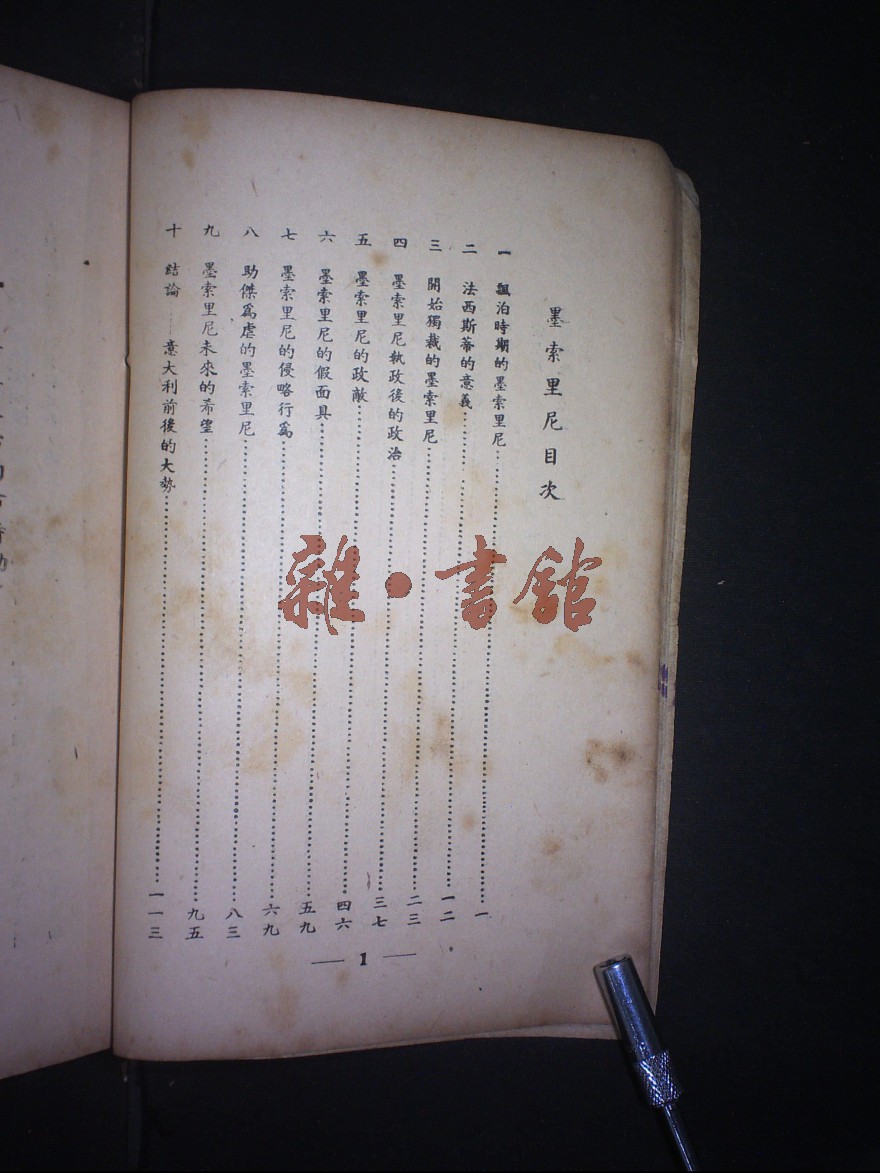 墨索里尼目次
一 飄泊時期的墨索里尼……一
二 法西斯蒂的意義……一二
三 開始獨裁的墨索里尼……二三
四 墨索里尼執政後的政治……三七
五 墨索里尼的政敵……四六
六 墨索里尼的假面具……五九
七 墨索里尼的侵略行為……六九
八 助傑爲虐的墨索里尼……八三
九 墨索里尼未來的希望……九五
十 結論……意大利前後的大勢……一一三
— 1 —
雜·書館